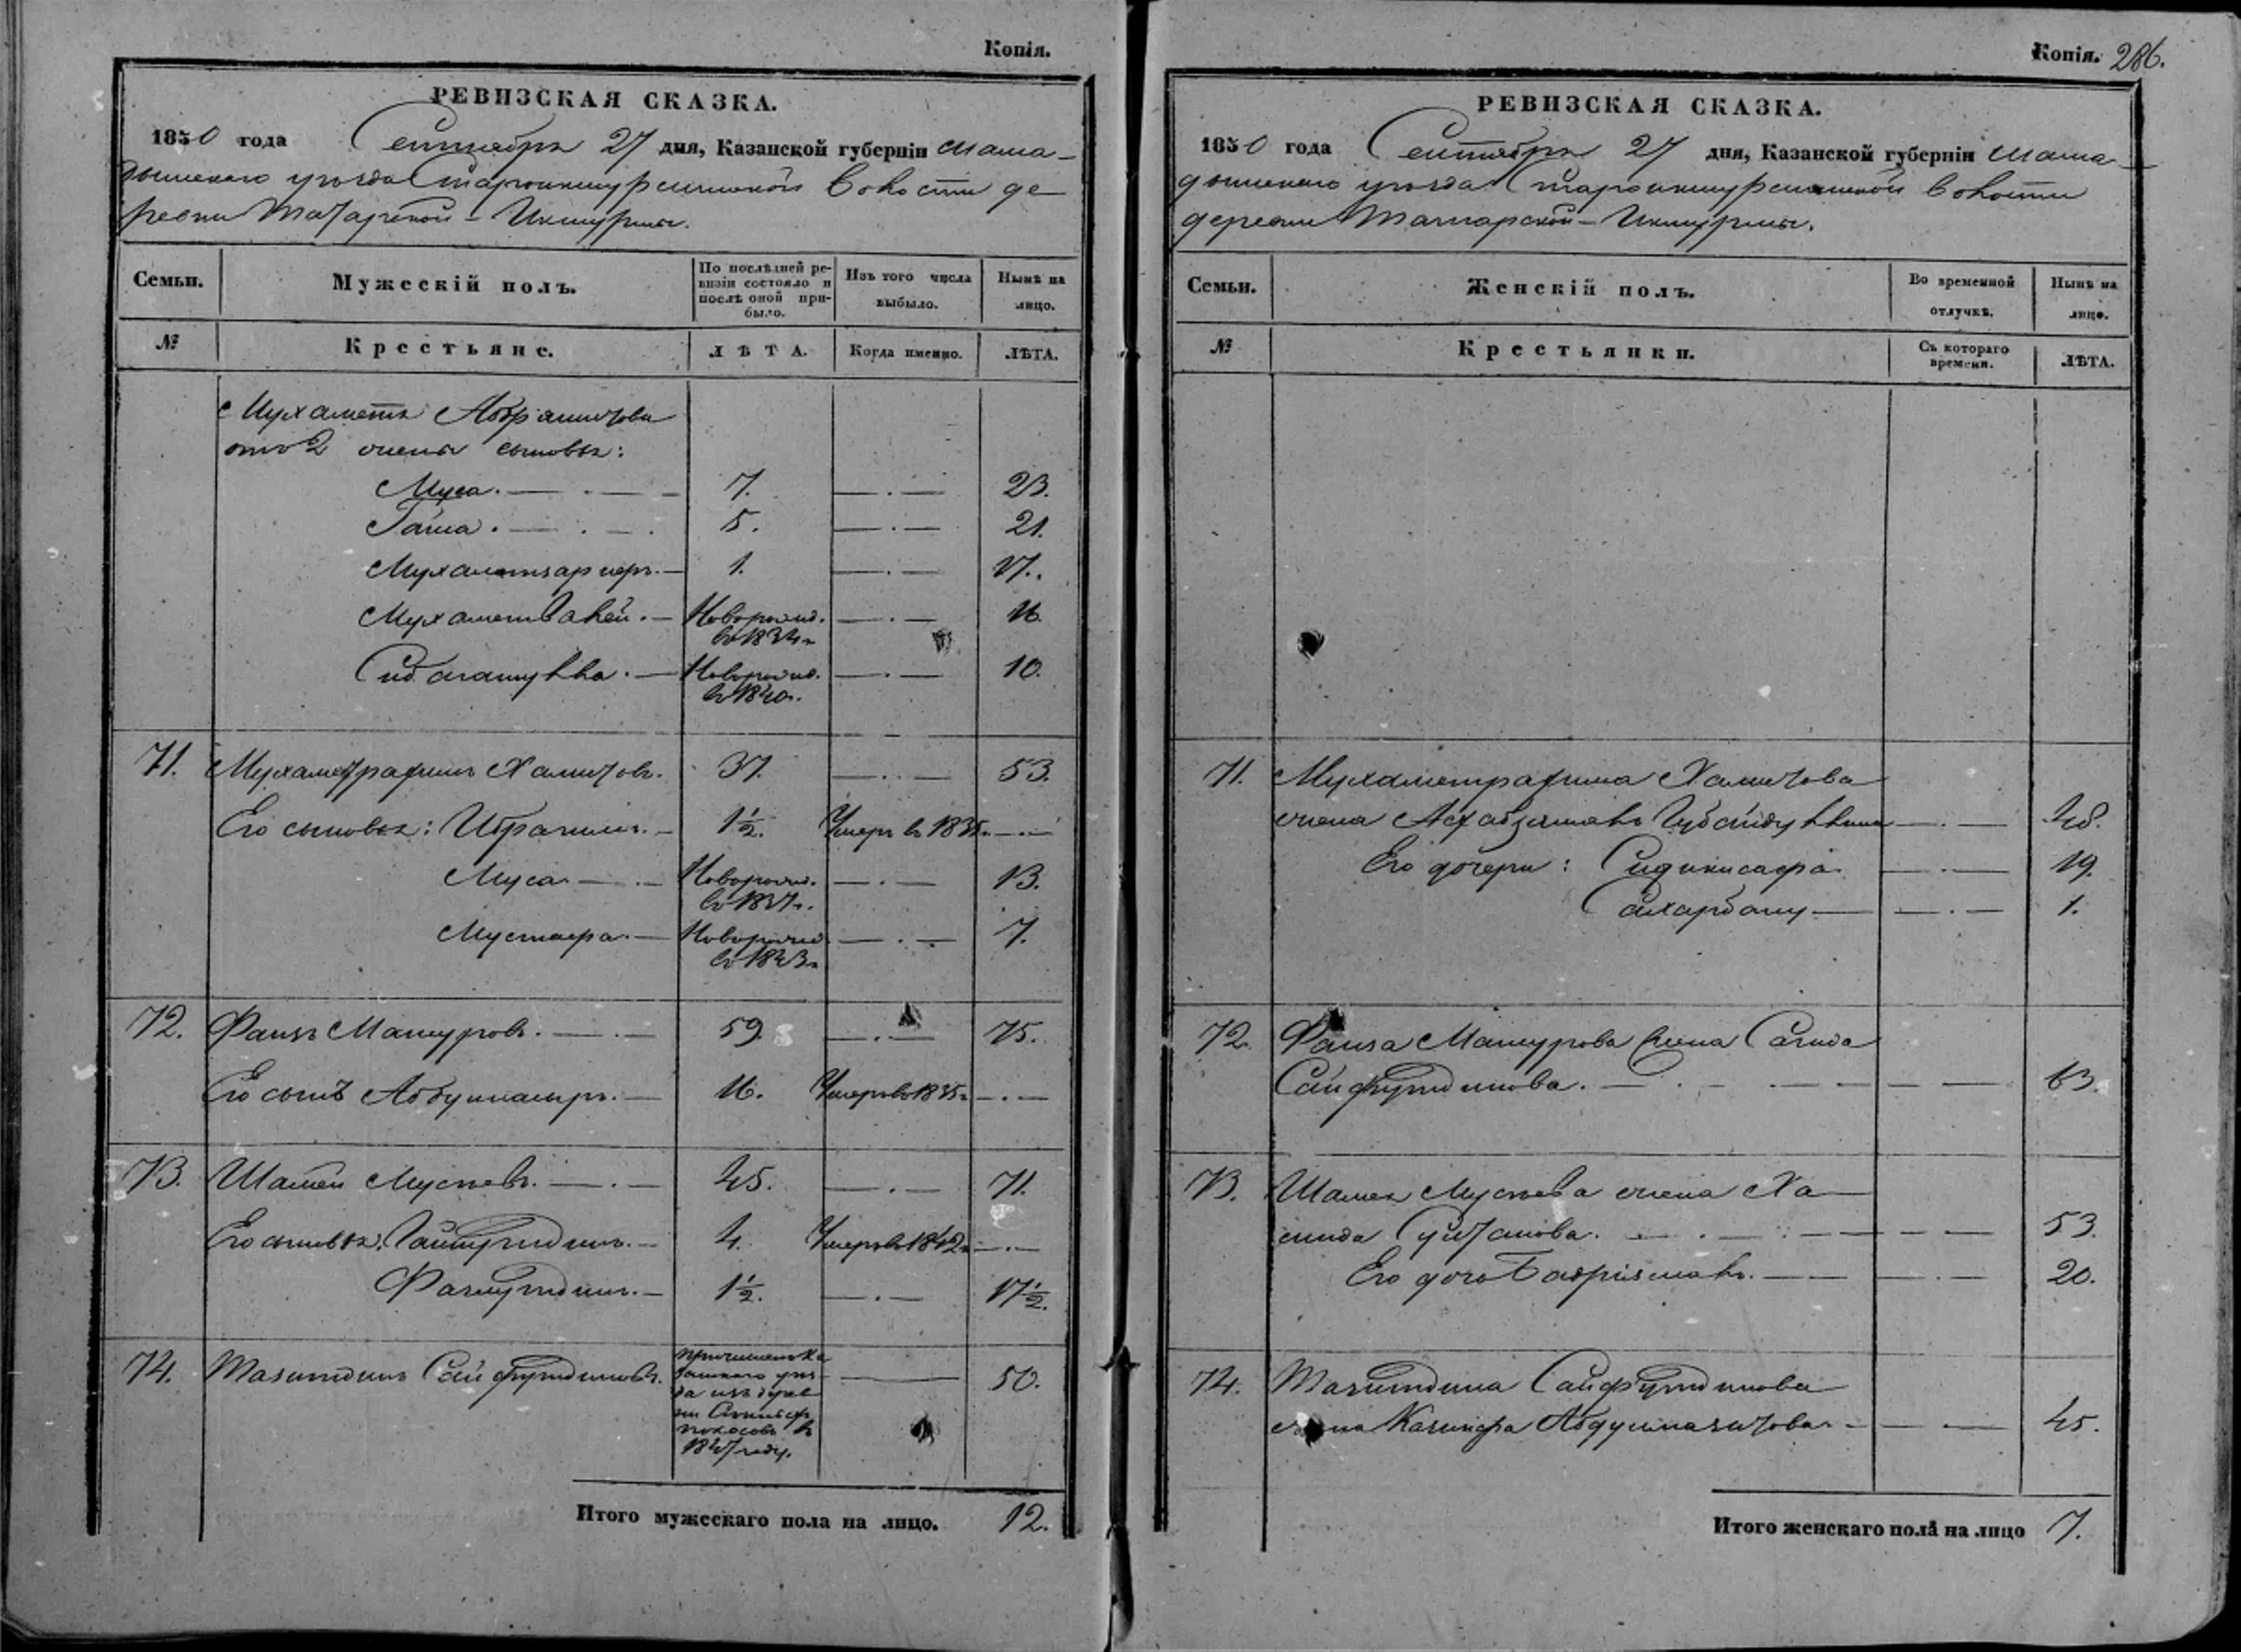 Копія.
РЕВИЗСКАЯ СКАЗКА.
1850 года Сентября 27 дня, Казанской губерніи Мама-
дышскаго уѣзда Староикшурминской волости де-
ревни Татарской-Икшурмы.
Семьи. Мужескій полъ. По послѣдней ре-визіи состояло и послѣ оной при-было. Изъ того числа выбыло. Нынѣ на лицо.
№ Крестьяне. ЛѢТА. Когда именно. ЛѢТА.
Мухаметъ
отъ 2 жены сыновья:
Муса. 7. 23.
5. 21.
1. 17.
Мухаметвалей. Новорожд. въ 1834г. 16.
Новорожд. въ 1840г. 10.
71. Мухаметрахимъ Халитовъ. 37. 53.
Его сыновья: Ибрагимъ. 1½. Умеръ въ 1835г.
Муса. Новорожд. въ 1837г. 13.
Мустафа. Новорожд. въ 1843г. 7.
72. Фаизъ Мансуровъ. 59. 75.
Его сынъ 16. Умеръ въ 1835г.
73. Шамей Мусѣевъ. 45. 71.
Его сыновья: 4. Умеръ въ 1842г.
1½. 17½.
74. Сайфутдиновъ. 50.
1847 году.
Итого мужескаго пола на лицо. 12.
Копія. 286.
РЕВИЗСКАЯ СКАЗКА.
1850 года Сентября 27 дня, Казанской губерніи Мама-
дышскаго уѣзда Староикшурминской волости
деревни Татарской-Икшурмы.
Семьи. Женскій полъ. Во временной отлучкѣ. Нынѣ на лицо.
№ Крестьянки. Съ котораго времени. ЛѢТА.
71. Мухаметрахима Халитова
жена Губайдуллина 48.
Его дочери: 19.
Сахарбану 1.
72. Фаиза Мансурова жена Сагида
Сайфутдинова. 63.
73. Шамея Мусѣева жена Ха-
мида Султанова. 53.
Его дочь Бадріямалъ. 20.
74. Сайфутдинова
жена 45.
Итого женскаго пола на лицо 7.